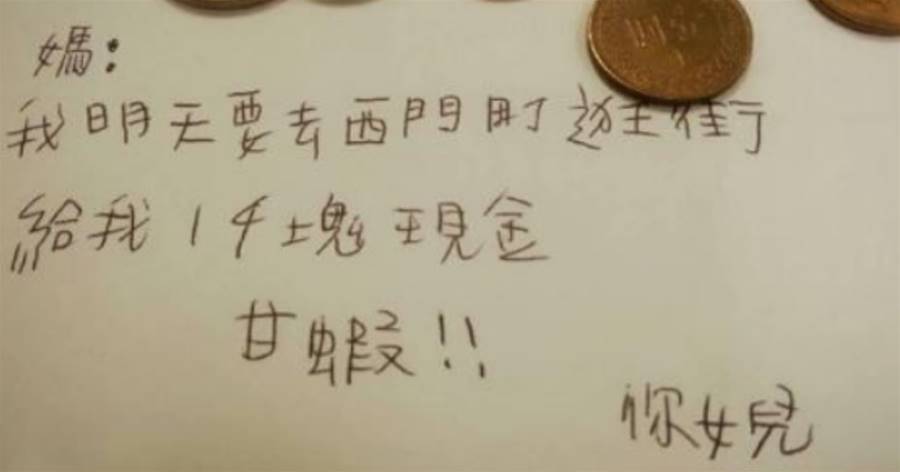 媽:
我明天要去西門町逛街
給我1千塊現金
甘蝦!!
你女兒